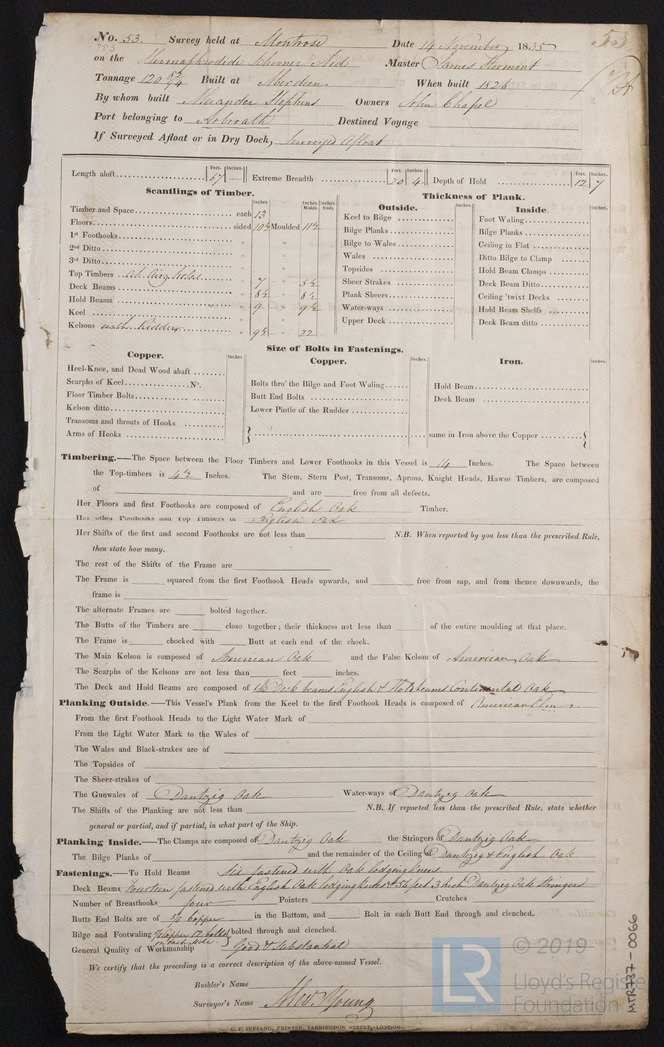 No. 53. Survey held at Montrose Date 14 November 1835 53
on the Hermaphrodide Schooner Master James
Tonnage 120 Built at Aberdeen When built 1826
By whom built Alexander Owners John Chapel
Port belonging to Arbroath Destined Voyage
If Surveyed Afloat or in Dry Dock, Surveyed Afloat
Feet. Inches. Feet. Inches. Feet. Inches.
Length aloft 67 Extreme Breadth 20 4 Depth of Hold 12 7
Scantlings of Timber.
Timber and Space each 13
Floors sided 10½ Moulded 11½
1st Foothooks
2nd Ditto
3rd Ditto
Top Timbers 7 5½
Deck Beams 8½ 8½
Hold Beams 9 9½
Keel
Kelsons with 9½ 22
Thickness of Plank.
Outside. Inches.
Keel to Bilge
Bilge Planks
Bilge to Wales
Wales
Topsides
Sheer Strakes
Plank Sheers
Water-ways
Upper Deck
Inside. Inches.
Foot Waling
Bilge Planks
Ceiling in Flat
Ditto Bilge to Clamp
Hold Beam Clamps
Deck Beam Ditto
Ceiling 'twixt Decks
Hold Beam Shelfs
Deck Beam ditto
Size of Bolts in Fastenings.
Copper. Inches.
Heel-Knee, and Dead Wood abaft
Scarphs of Keel No.
Floor Timber Bolts
Kelson ditto
Transoms and throats of Hooks
Arms of Hooks
Copper. Inches.
Bolts thro' the Bilge and Foot Waling
Butt End Bolts
Lower Pintle of the Rudder
Iron. Inches.
Hold Beam
Deck Beam
same in Iron above the Copper
Timbering.—The Space between the Floor Timbers and Lower Foothooks in this Vessel is 14 Inches. The Space between
the Top-timbers is 4½ Inches. The Stem, Stern Post, Transoms, Aprons, Knight Heads, Hawse Timbers, are composed
of and are free from all defects.
Her Floors and first Foothooks are composed of English Oak Timber.
Her other Foothooks and Top Timbers of English Oak
Her Shifts of the first and second Foothooks are not less than N.B. When reported by you less than the prescribed Rule,
then state how many.
The rest of the Shifts of the Frame are
The Frame is squared from the first Foothook Heads upwards, and free from sap, and from thence downwards, the
frame is
The alternate Frames are bolted together.
The Butts of the Timbers are close together; their thickness not less than of the entire moulding at that place.
The Frame is chocked with Butt at each end of the chock.
The Main Kelson is composed of American Oak and the False Kelson of American Oak
The Scarphs of the Kelsons are not less than feet inches.
The Deck and Hold Beams are composed of Deck beams English & Hold beams Continental Oak
Planking Outside.—This Vessel's Plank from the Keel to the first Foothook Heads is composed of American Elm
From the first Foothook Heads to the Light Water Mark of
From the Light Water Mark to the Wales of
The Wales and Black-strakes are of
The Topsides of
The Sheer-strakes of
The Gunwales of Dantzig Oak Water-ways of Dantzig Oak
The Shifts of the Planking are not less than N.B. If reported less than the prescribed Rule, state whether
general or partial, and if partial, in what part of the Ship.
Planking Inside.—The Clamps are composed of Dantzig Oak the Stringers of Dantzig Oak
The Bilge Planks of and the remainder of the Ceiling of Dantzig & English Oak
Fastenings.—To Hold Beams Six fastened with Oak lodging knees
Deck Beams Fourteen fastened with English Oak lodging knees & 3 inch Dantzig Oak Stringers
Number of Breasthooks four Pointers Crutches
Butts End Bolts are of Copper in the Bottom, and Bolt in each Butt End through and clenched.
Bilge and Footwaling Copper 12 bolts on each side bolted through and clenched.
General Quality of Workmanship Good & Substantial
We certify that the preceding is a correct description of the above-named Vessel.
Builder's Name
Surveyor's Name Young
C. F. SEYFANG, PRINTER, FARRINGDON STREET, LONDON
MTR737-0066
LR © 2019
Lloyd's Register
Foundation